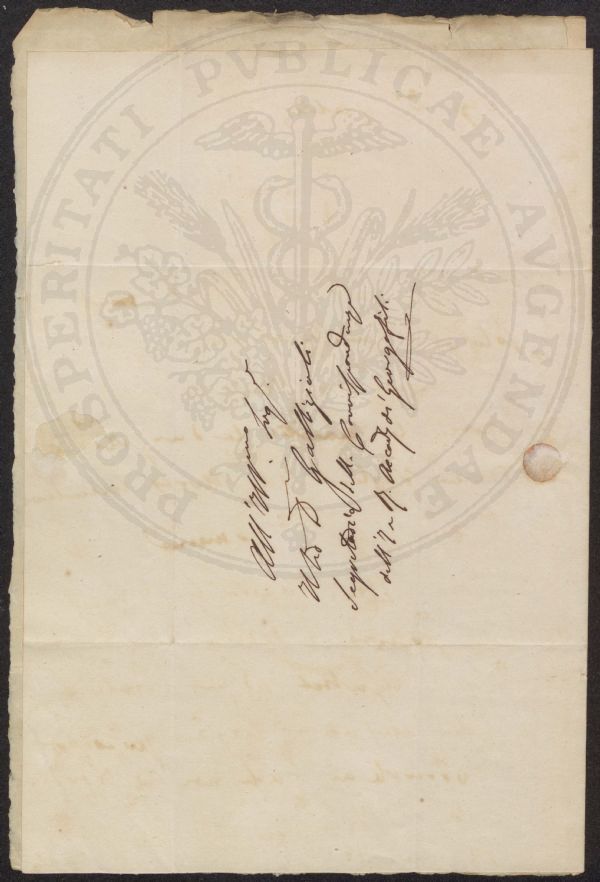 PROSPERITATI PVBLICAE AVGENDAE
All'Ill.mo Sig.r
D.r Gallizioli
Segretario delle Corrispondenze
dell'I. e R. Accad. dei Georgofili